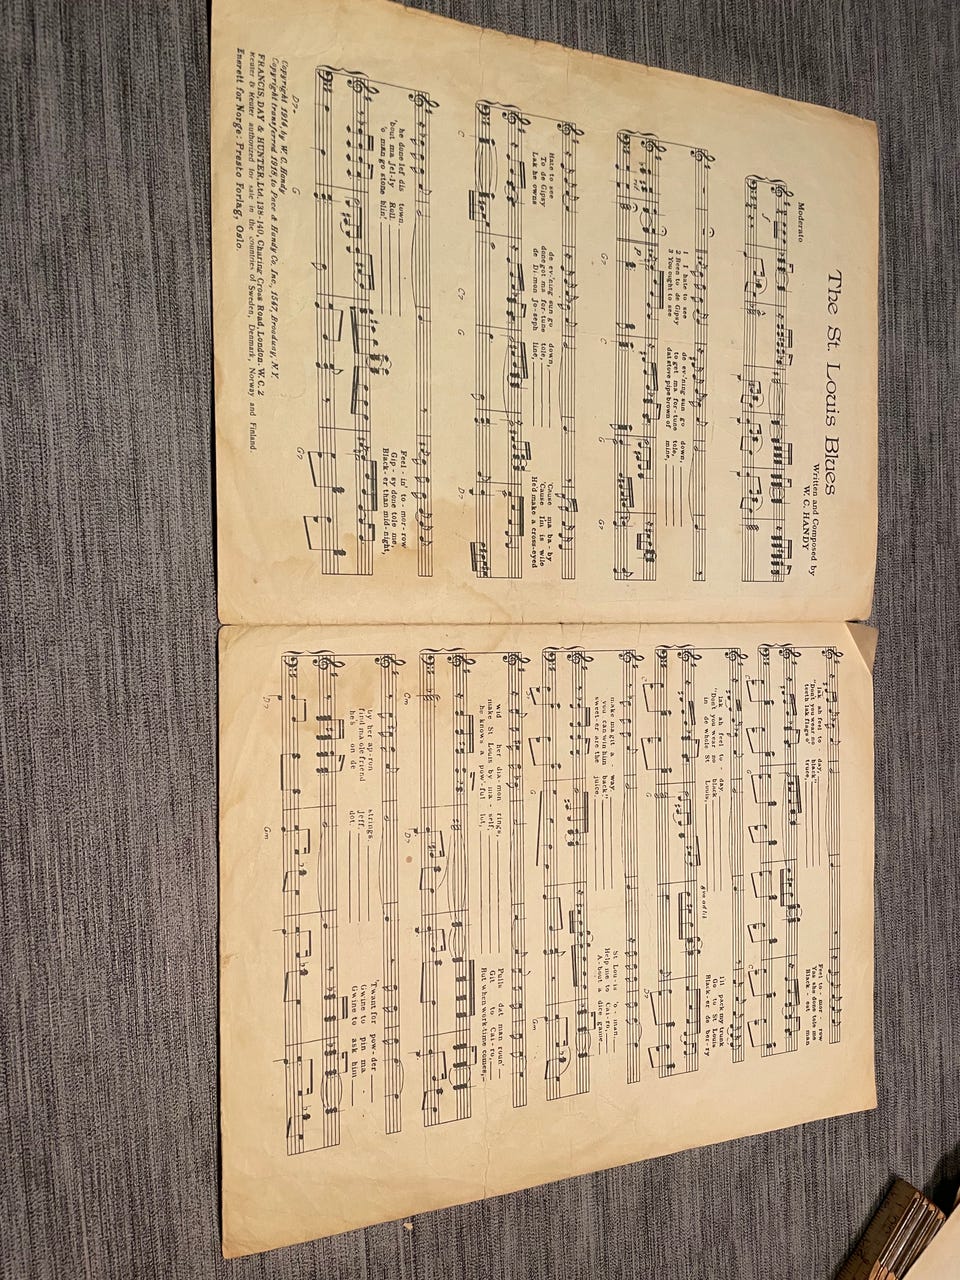 The St. Louis Blues
Written and Composed by
W. C. HANDY
Moderato
1 I hate to see de ev'ning sun go down,
2 Been to de Gipsy to get ma for-tune tole,
3 You ought to see dat stove pipe brown of mine,
G7 C G G7
Hate to see de ev'ning sun go down, 'Cause ma ba-by
To de Gipsy done got ma for-tune tole, 'Cause I'm is wile
Lak he owns de Di-mon Jo-seph line, He'd make a cross-eyed
C C7 G D7
he done lef' dis town. Feel-in' to-mor-row
'bout ma Jel-ly Roll. Gip-sy done tole me,
'o man go stone blin'. Black-er than mid-night,
D7 G G7
Copyright 1914, by W. C. Handy
Copyright transferred 1918, to Pace & Handy Co. Inc., 1547, Broadway, N.Y.
FRANCIS, DAY & HUNTER, Ltd. 138-140, Charing Cross Road, London. W. C. 2
Reuter & Reuter authorized for sale in the countries of Sweden, Denmark, Norway and Finland.
Enerett for Norge: Presto Forlag, Oslo.
lak ah feel to-day, Feel to-mor-row
"Don't you wear no black" Yas she done tole me
teeth lak flags o' truce, Black-est man
C G C
lak ah feel to-day I'll pack my trunk
"Don't you wear no black Go to St Louis
in de whole St Louis, Black-er de ber-ry
C G D7
make ma git a way. St Lou-is 'o-man,
you can win him back" Help me to Cai-ro,
sweet-er are the juice, A-bout a dice game
G Gm
wid her dia-mon rings, Pulls dat man roun'
make St Louis by ma-self, Git to Cai-ro,
he knows a pow'-ful lot, But when work-time comes,
Cm D7
by her ap-ron strings. 'Twant for pow-der
find ma ole friend Jeff. Gwine to pin ma
he's on de dot. Gwine to ask him
D7 Gm